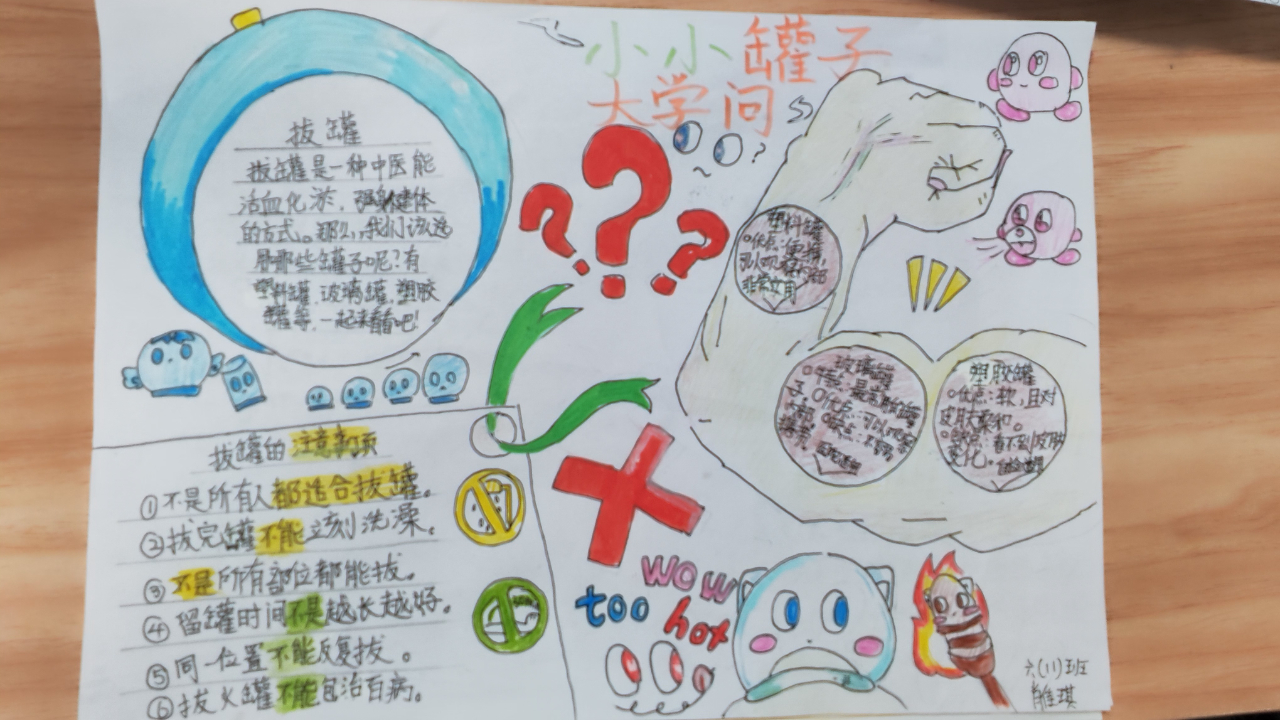 小小罐子
大学问
拔罐
拔罐是一种中医能
活血化淤，强身健体
的方式。那么，我们该选
用哪些罐子呢？有
塑料罐、玻璃罐、塑胶
罐等，一起来看看吧！
塑料罐
优点：便携，
非常实用
玻璃罐
塑胶罐
优点：软，且对
皮肤柔和。
缺点：看不到皮肤
变化。
拔罐的注意事项
①不是所有人都适合拔罐。
②拔完罐不能立刻洗澡。
③不是所有部位都能拔。
④留罐时间不是越长越好。
⑤同一位置不能反复拔。
⑥拔火罐不能包治百病。
wow
too hot
六(11)班